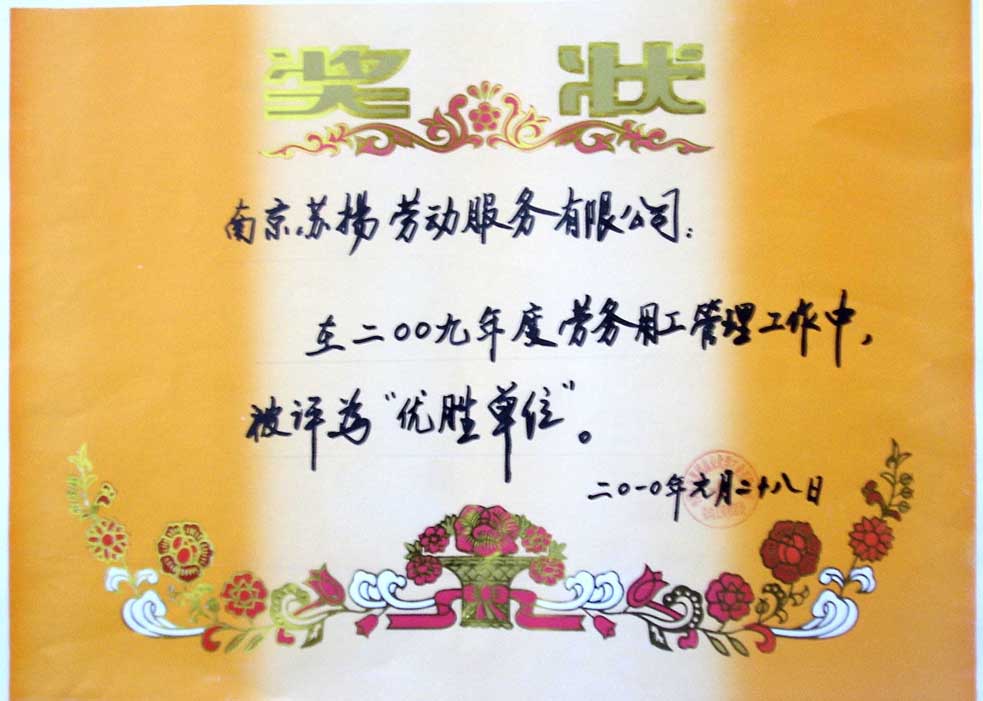 奖状
南京苏揚劳动服务有限公司:
在二00九年度劳务用工管理工作中,
被评为"优胜单位"。
二0一0年元月二十八日